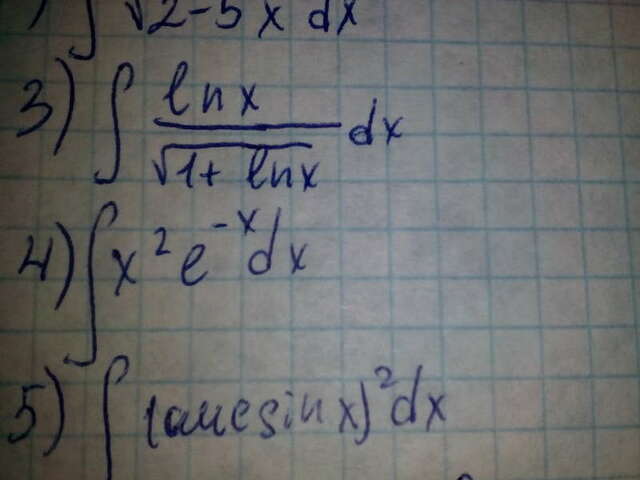 ) ∫ √2-5x dx
3) ∫ ln x / √1+ ln x dx
4) ∫ x² e^-x dx
5) ∫ (arcsin x)² dx